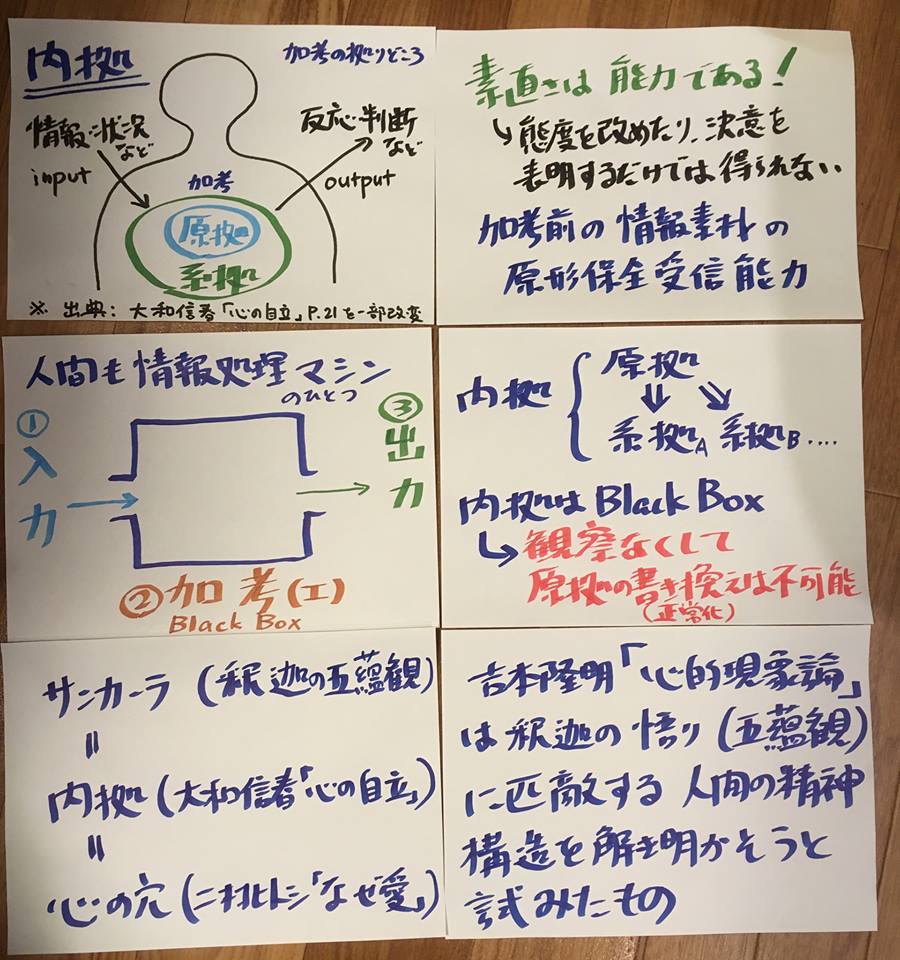 内拠
加考の拠りどころ
情報・状況
など
input
反応・判断
など
output
加考
原拠
系拠
※ 出典: 大和信春「心の自立」P.21を一部改変
素直さは能力である!
態度を改めたり、決意を
表明するだけでは得られない
加考前の情報素材の
原形保全受信能力
人間も情報処理マシン
のひとつ
①入力
③出力
②加考(工)
Black Box
内拠
原拠
系拠A 系拠B ....
内拠はBlack Box
観察なくして
原拠の書き換えは不可能
(正常化)
サンカーラ (釈迦の五蘊観)
=
内拠 (大和信春「心の自立」)
=
心の穴 (二村ヒトシ「なぜ愛」)
吉本隆明「心的現象論」
は釈迦の悟り (五蘊観)
に匹敵する人間の精神
構造を解き明かそうと
試みたもの